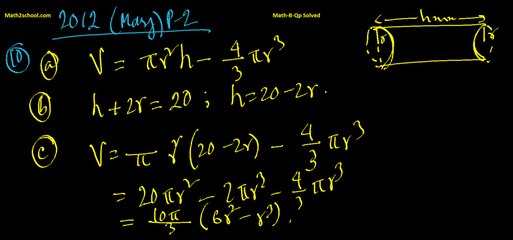 Math2school.com
Math-B-Qp Solved
2012 (May) P-2
h mm
r r
10 a V = πr²h - 4/3 πr³
b h + 2r = 20 ; h = 20 - 2r.
c V = π r (20 - 2r) - 4/3 πr³
= 20πr² - 2πr³ - 4/3 πr³
= 10π/3 (6r² - r³).